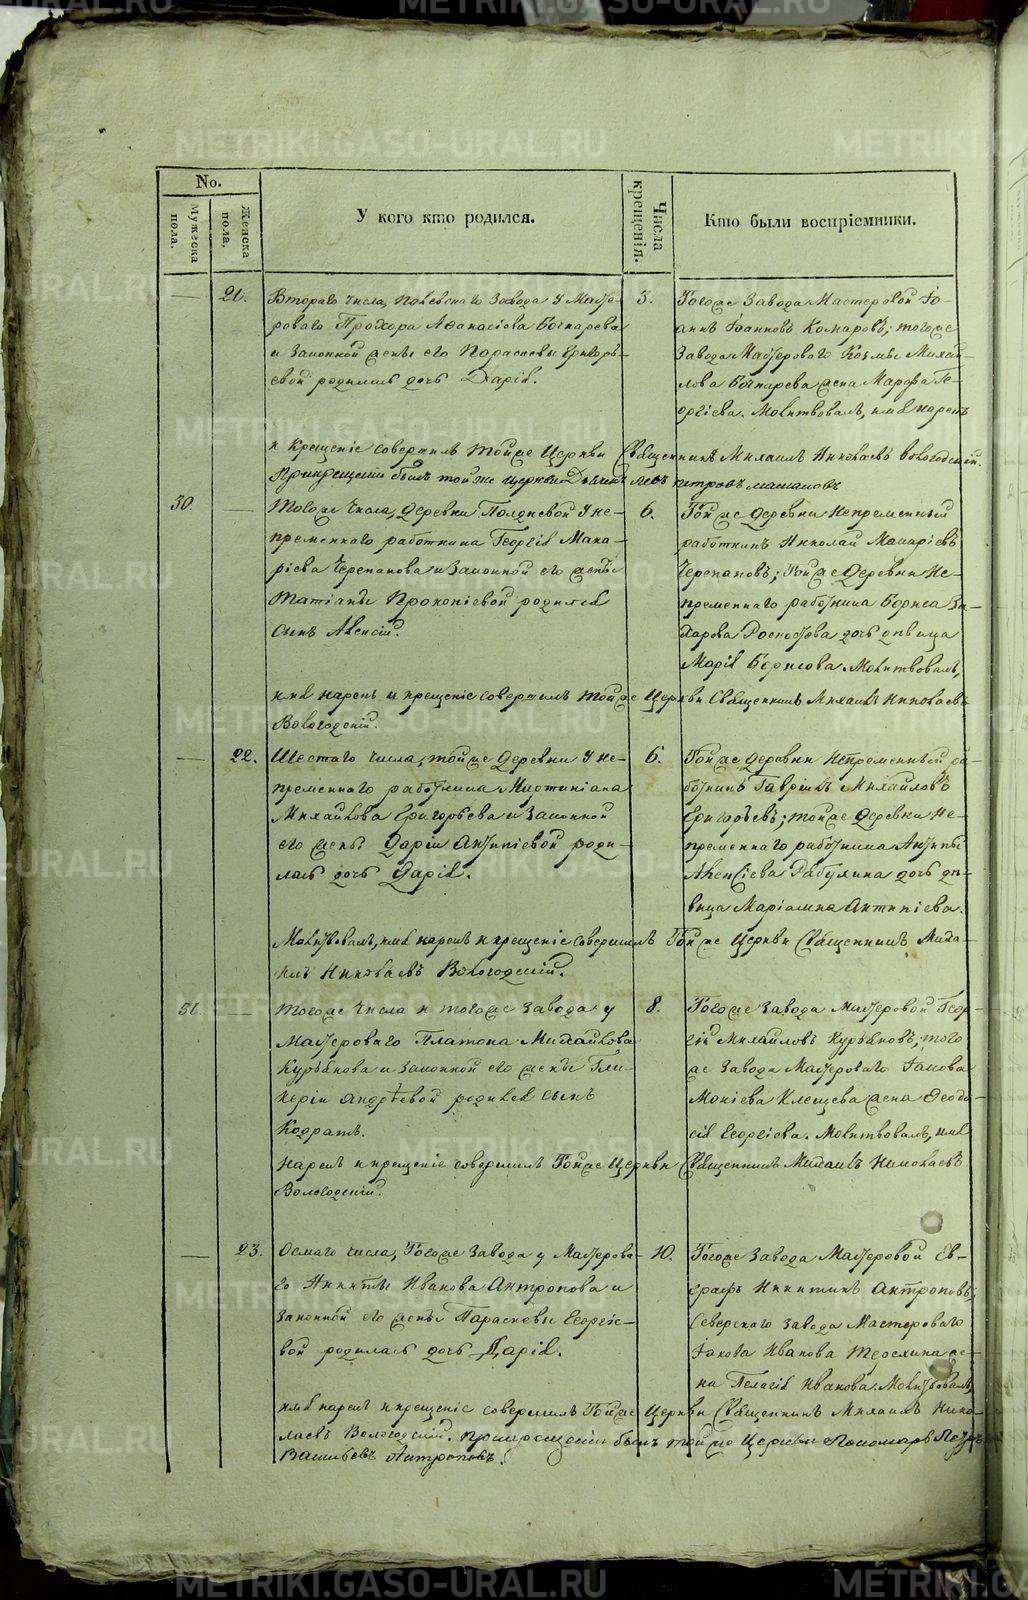 METRIKI.GASO-URAL.RU
No.
Мужеска пола.
Женска пола.
У кого кто родился.
Числа крещенія.
Кто были воспріемники.
21.
Втораго числа, Полевскаго Завода у Масте-
роваго Прохора Аѳанасіева Бочкарева
и законной жены его Параскевы Григорь-
евой родилась дочь Дарія.
3.
Тогоже Завода Мастеровой Іо-
аннъ Іоанновъ Комаровъ; тогоже
Завода Мастероваго Козмы Михай-
лова Бочкарева жена Марѳа Ге-
оргіева. Молитвовалъ, имя нарекъ
и крещеніе совершилъ тойже Церкви Священникъ Михаилъ Николаевъ Вологодскій.
При крещеніи былъ тойже церкви Дьячекъ Левъ Петровъ
30.
Тогоже числа, деревни Полдневой у не-
пременнаго работника Георгія Мака-
ріева Черепанова и законной его жены
Татіаны Прокопіевой родился
сынъ Алексій.
6.
Тойже деревни Непременный
работникъ Николай Макаріевъ
Черепановъ; Тойже деревни Не-
пременнаго работника Бориса За-
харова дочь девица
Марія Борисова. Молитвовалъ,
имя нарекъ и крещеніе совершилъ тойже Церкви Священникъ Михаилъ Николаевъ
Вологодскій.
22.
Шестаго числа, тойже деревни у не-
пременнаго работника Мартиніана
Михайлова Григорьева и законной
его жены Даріи Антипіевой роди-
лась дочь Дарія.
6.
Тойже деревни Непременный ра-
ботникъ Гавріилъ Михайловъ
Григорьевъ; тойже деревни Не-
пременнаго работника Антипы
Алексіева дочь де-
вица Маріамна Антипіева.
Молитвовалъ, имя нарекъ и крещеніе совершилъ Тойже Церкви Священникъ Миха-
илъ Николаевъ Вологодскій.
31.
Тогоже числа и тогоже завода у
Мастероваго Платона Михайлова
Курбанова и законной его жены Гли-
керіи Андреевой родился сынъ
Кодратъ.
8.
Тогоже Завода Мастеровой Геор-
гій Михайловъ Курбановъ; того-
же Завода Мастероваго Іакова
Мокіева Клещева жена Ѳеодо-
сія Георгіева. Молитвовалъ, имя
нарекъ и крещеніе совершилъ Тойже Церкви Священникъ Михаилъ Николаевъ
Вологодскій.
23.
Осмаго числа, Тогоже Завода у Мастерова-
го Никиты Иванова Антропова и
законной его жены Параскевы Георгіе-
вой родилась дочь Дарія.
10.
Тогоже Завода Мастеровой Ев-
графъ Никитинъ Антроповъ;
Северскаго Завода Мастероваго
Іакова Иванова же-
на Пелагія Иванова. Молитвовалъ,
имя нарекъ и крещеніе совершилъ Тойже Церкви Священникъ Михаилъ Нико-
лаевъ Вологодскій. При крещеніи былъ тойже Церкви Пономарь Петръ
Васильевъ Антроповъ.